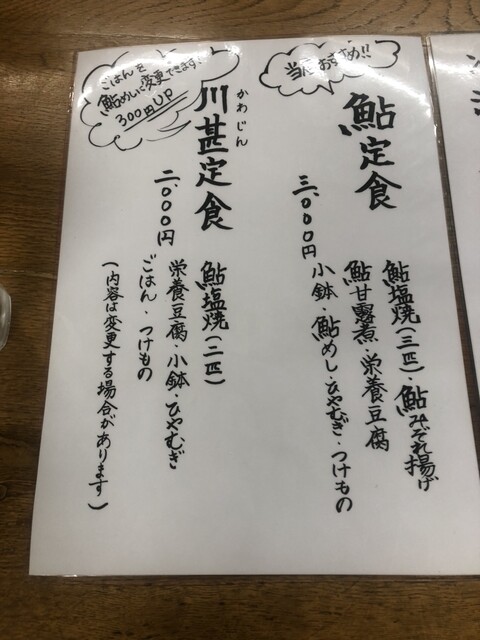 当店おすすめ!!
鮎定食
三、〇〇〇円
鮎塩焼(三匹)・鮎みぞれ揚げ
鮎甘露煮・栄養豆腐
小鉢・鮎めし・ひやむぎ・つけもの
ごはんを
鮎めしに変更できます!
300円UP
かわじん
川甚定食
二、〇〇〇円
鮎塩焼(二匹)
栄養豆腐・小鉢・ひやむぎ
ごはん・つけもの
(内容は変更する場合があります)